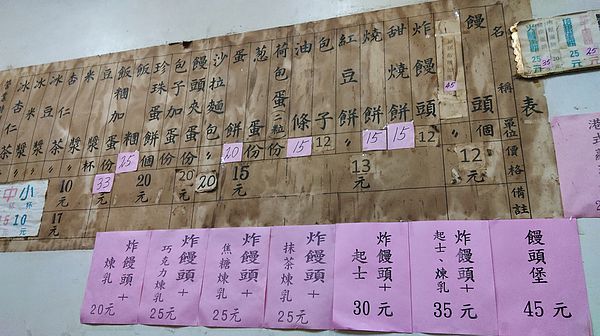 表
名稱 單位 價格 備註
饅頭 個 12元
炸饅頭 〃
甜燒餅 〃 15
燒餅 〃 15
紅豆餅 13元
包子 12
油條 15
荷包蛋二粒 份
蔥蛋 份
蛋餅 20 15元
沙拉麵包 〃 20
饅頭夾蛋 份
包子加蛋 份 20元
珍珠蛋餅 份
飯糰 個 20元
飯糰加蛋 份 25
豆漿 杯 33
米漿
杏仁漿 10元
冰豆漿 17元
冰米漿
冰杏仁茶
小杯 10元
中
25元
35
25元
港式蘿
炸饅頭+煉乳 20元
炸饅頭+巧克力煉乳 25元
炸饅頭+焦糖煉乳 25元
炸饅頭+抹茶煉乳 25元
炸饅頭+起士 30元
炸饅頭+起士、煉乳 35元
饅頭堡 45元